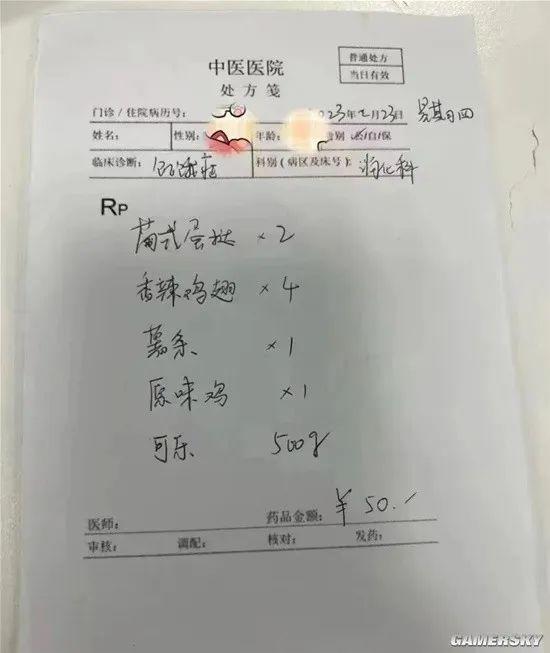 普通处方
当日有效
中医医院
处方笺
门诊/住院病历号: 023年 月23日 星期四
姓名: 性别: 年龄: 别 /自/保
临床诊断: 饥饿症 科别(病区及床号): 消化科
RP
葡式蛋挞 ×2
香辣鸡翅 ×4
薯条 ×1
原味鸡 ×1
可乐 500g
医师: 药品金额: ¥50.-
审核: 调配: 核对: 发药:
GAMERSKY